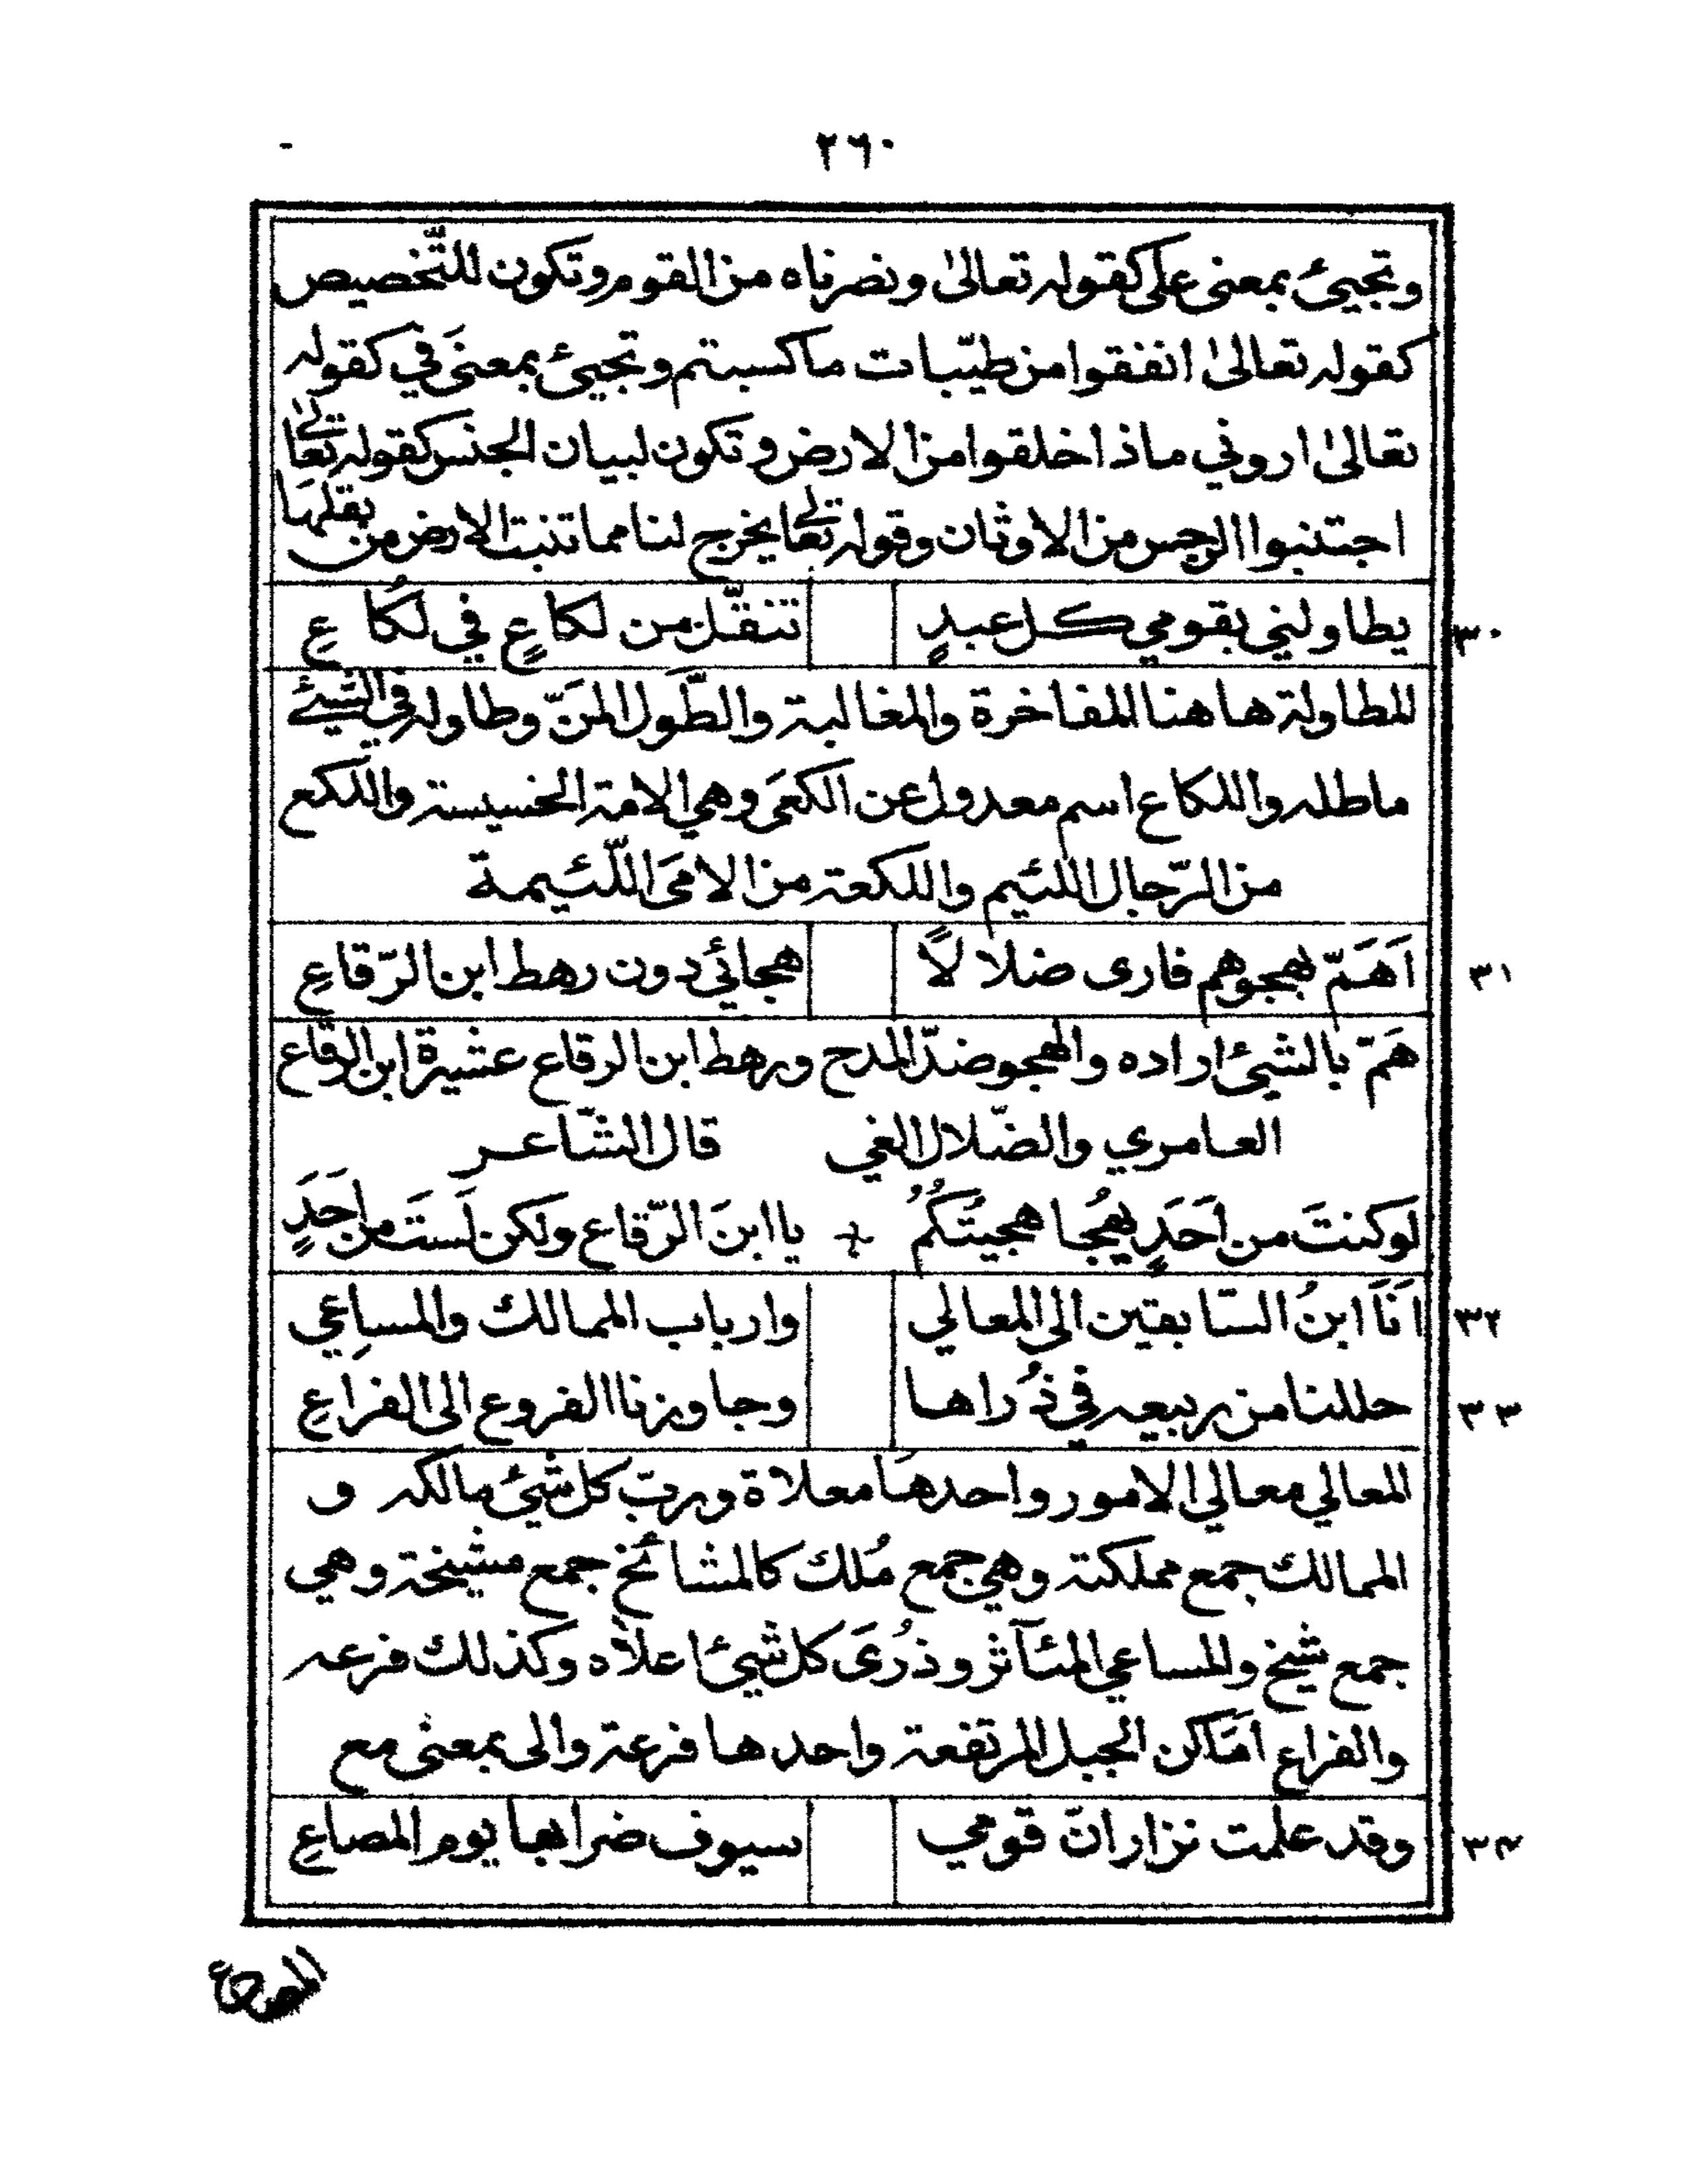 ٢٦٠
وتجيئ بمعنى على كقوله تعالىٰ ونصرناه من القوم وتكون للتّخصيص
كقوله تعالىٰ انفقوا من طيّبات ما كسبتم وتجيئ بمعنَى في كقوله
تعالىٰ اروني ماذا خلقوا من الارض وتكون لبيان الجنس كقوله تعالىٰ
اجتنبوا الرجس من الاوثان وقوله تعالى يخرج لنا مما تنبت الارض من بقلها
٣٠ يطاولني بقومي كل عبدٍ تنقّل من لكاعٍ في لكُاعِ
المطاولة هاهنا المفاخرة والمغالبة والطَّول المَنّ وطاوله في الشيئ
ماطله واللكاع اسم معدول عن الكعَى وهي الامة الخسيسة واللكع
من الرّجال اللئيم واللكعة من الامَى اللّئيمة
٣١ اَهَمّ بهجوهم فارى ضلالاً هجائي دون رهط ابن الرّقاعِ
هَمّ بالشيئ اراده والهجو ضدّ المدح ورهط ابن الرقاع عشيرة ابن الرقاع
العامري والضّلال الغي قال الشّاعر
لو كنتَ من اَحَدٍ يهُجا هجيتُكُمُ + يا ابنَ الرّقاع ولكن لَستَ من اَحَدٍ
٣٢ اَنَا ابنُ السّابقين الى المعالي وارباب الممالك والمساعِي
٣٣ حللنا من ربيعه في ذُراها وجاوزنا الفروع الى الفراعِ
المعالي معالي الامور واحدها معلاة وربّ كل شيئ مالكه و
الممالك جمع مملكة وهي جمع مُلك كالمشائخ جمع مشيخة وهي
جمع شيخ والمساعي المئآثر وذرُىَ كل شيئ اعلاه وكذلك فرعه
والفراع اَمَاكن الجبل المرتفعة واحدها فرعة والى بمعنى مع
٣٤ وقد علمت نزار انّ قومي سيوف ضرابها يوم المصاعِ
المصاع